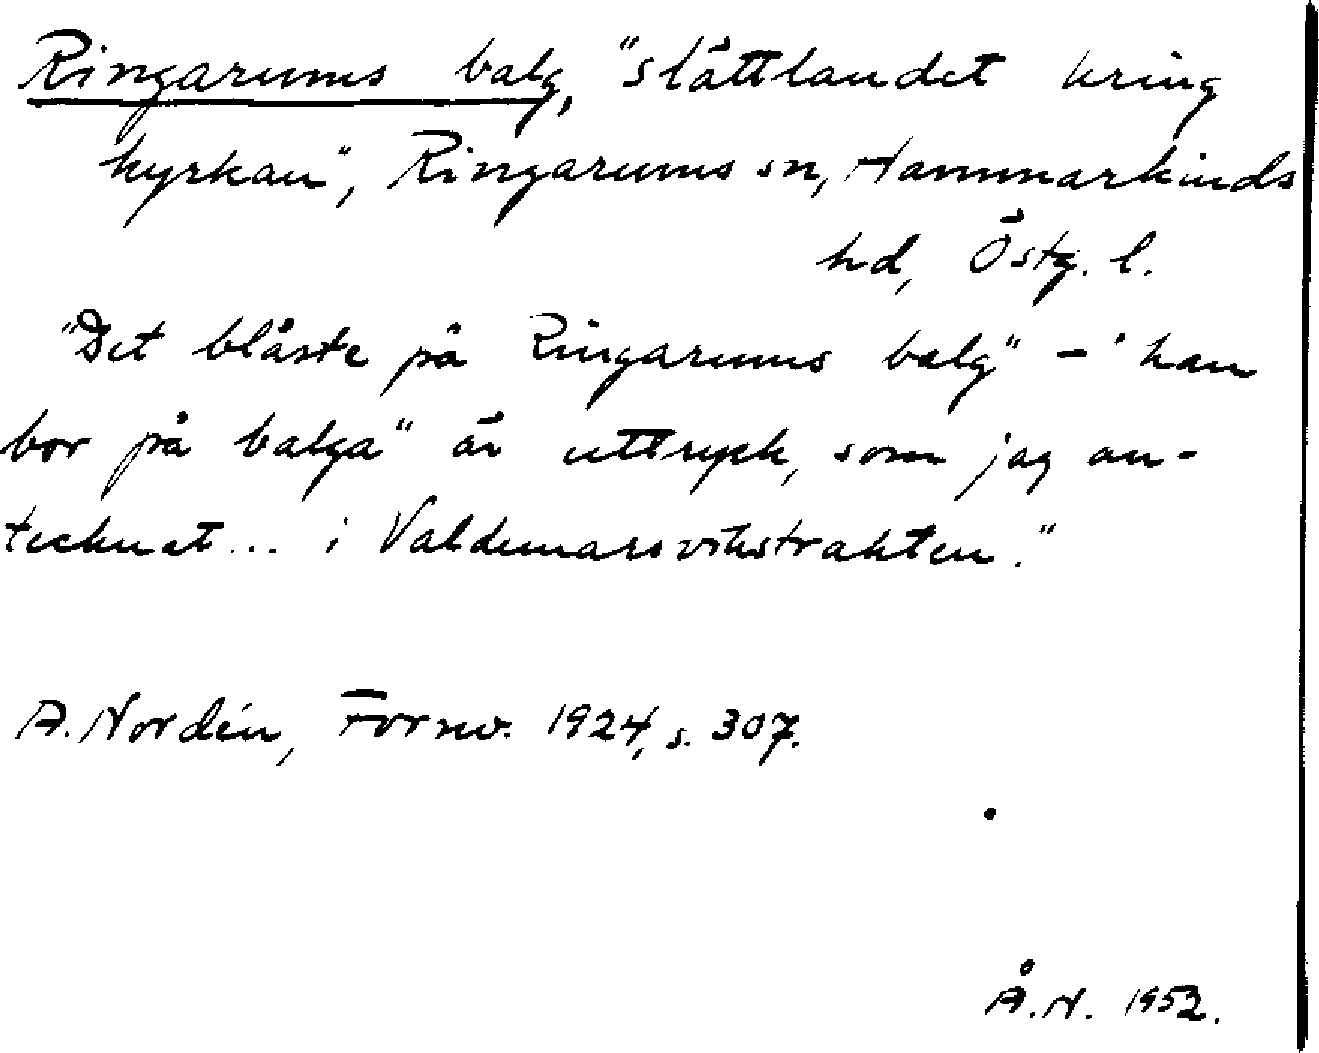 Ringarums balg, "slättlandet kring
kyrkan", Ringarums sn, Hammarkinds
hd, Östg. l.
"Det blåste på Ringarums balg" – 'han
bor på balga" är uttryck, som jag an-
tecknat... i Valdemarsvikstrakten."
A. Nordén, Fornv. 1924, s. 307.
Å.N. 1952.